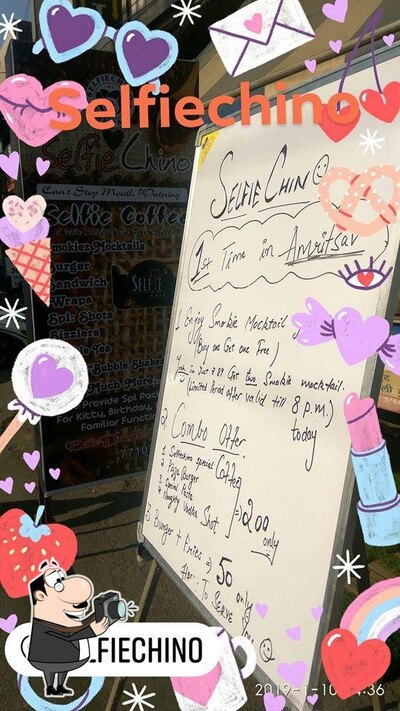 Selfiechino
SelfieChino
Can't Stop Mouth Watering
Selfie Coffee
Smokiez Mocktails
Burger
Sandwich
Wraps
Spl: Shots
Sizzlers
Bubble Shakes
Much More
Provide Spl Pac
For Kitty, Birthday,
Familiar Functi
7710
SELFIE CHINO
1st Time in Amritsar
1 Enjoy Smokie Mocktail
(Buy one Get one Free)
Get two Smokie mocktail.
(Limited Period offer valid till 8 p.m.)
today
2 Combo Offer.
1 Selfiechino special Coffee
2 Pizza Burger
3 Special Pasta
4 Naughty Vodka Shot
= 200 only
3 Burger + fries => 50 only
Happy To SERVE You
LFIECHINO
2019-1-10 14:36